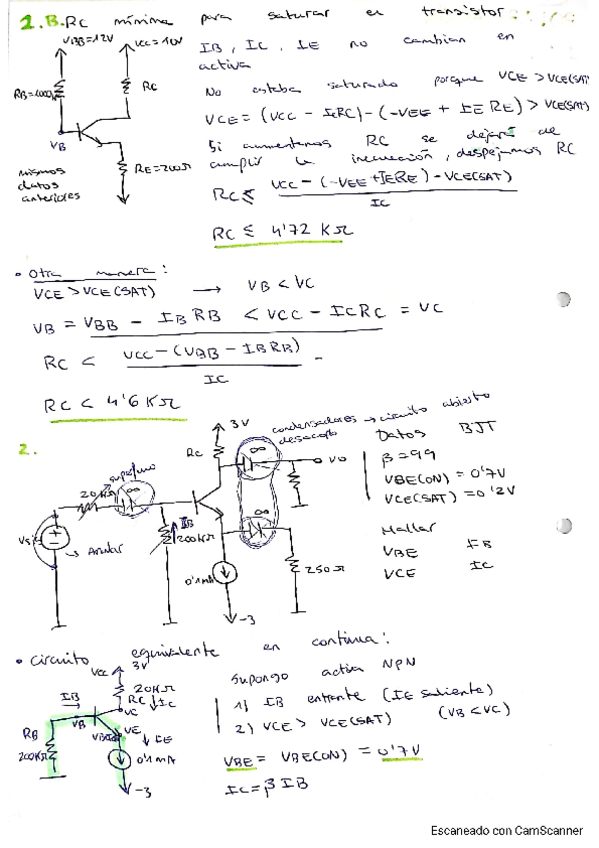 1.B. RC mínima para saturar el transistor:
VBB=12V
VCC=10V
RB=1000K
RC
VB
RE=200Ω
mismos
datos
anteriores
IB, IC, IE no cambian en
activa
No estaba saturado porque VCE > VCE(SAT)
VCE = (VCC - ICRC) - (-VEE + IE RE) > VCE(SAT)
Si aumentamos RC se dejará de
cumplir la inecuación, despejamos RC
RC ≤ VCC - (-VEE + IERE) - VCE(SAT)
IC
RC ≤ 4'72 KΩ
• Otra manera:
VCE > VCE(SAT) → VB < VC
VB = VBB - IB RB < VCC - ICRC = VC
RC < VCC - (VBB - IBRB)
IC
RC < 4'6 KΩ
2.
3V
RC
condensadores → circuito abierto
desacoplo
∞
VO
superfluo
20KΩ
∞
VS
→ Anular
IB
200KΩ
∞
0'1mA
250Ω
-3
Datos BJT
β=99
VBE(ON) = 0'7V
VCE(SAT) = 0'2V
Hallar
VBE IB
VCE IC
• Circuito equivalente en continua:
VCC 3V
20KΩ
RC ↓IC
IB
VC
VB
VE
RB
200KΩ
↓ IE
0'1mA
-3
Supongo activa NPN
1) IB entrante (IE saliente)
2) VCE > VCE(SAT) (VB < VC)
VBE = VBE(ON) = 0'7V
IC = β IB
Escaneado con CamScanner